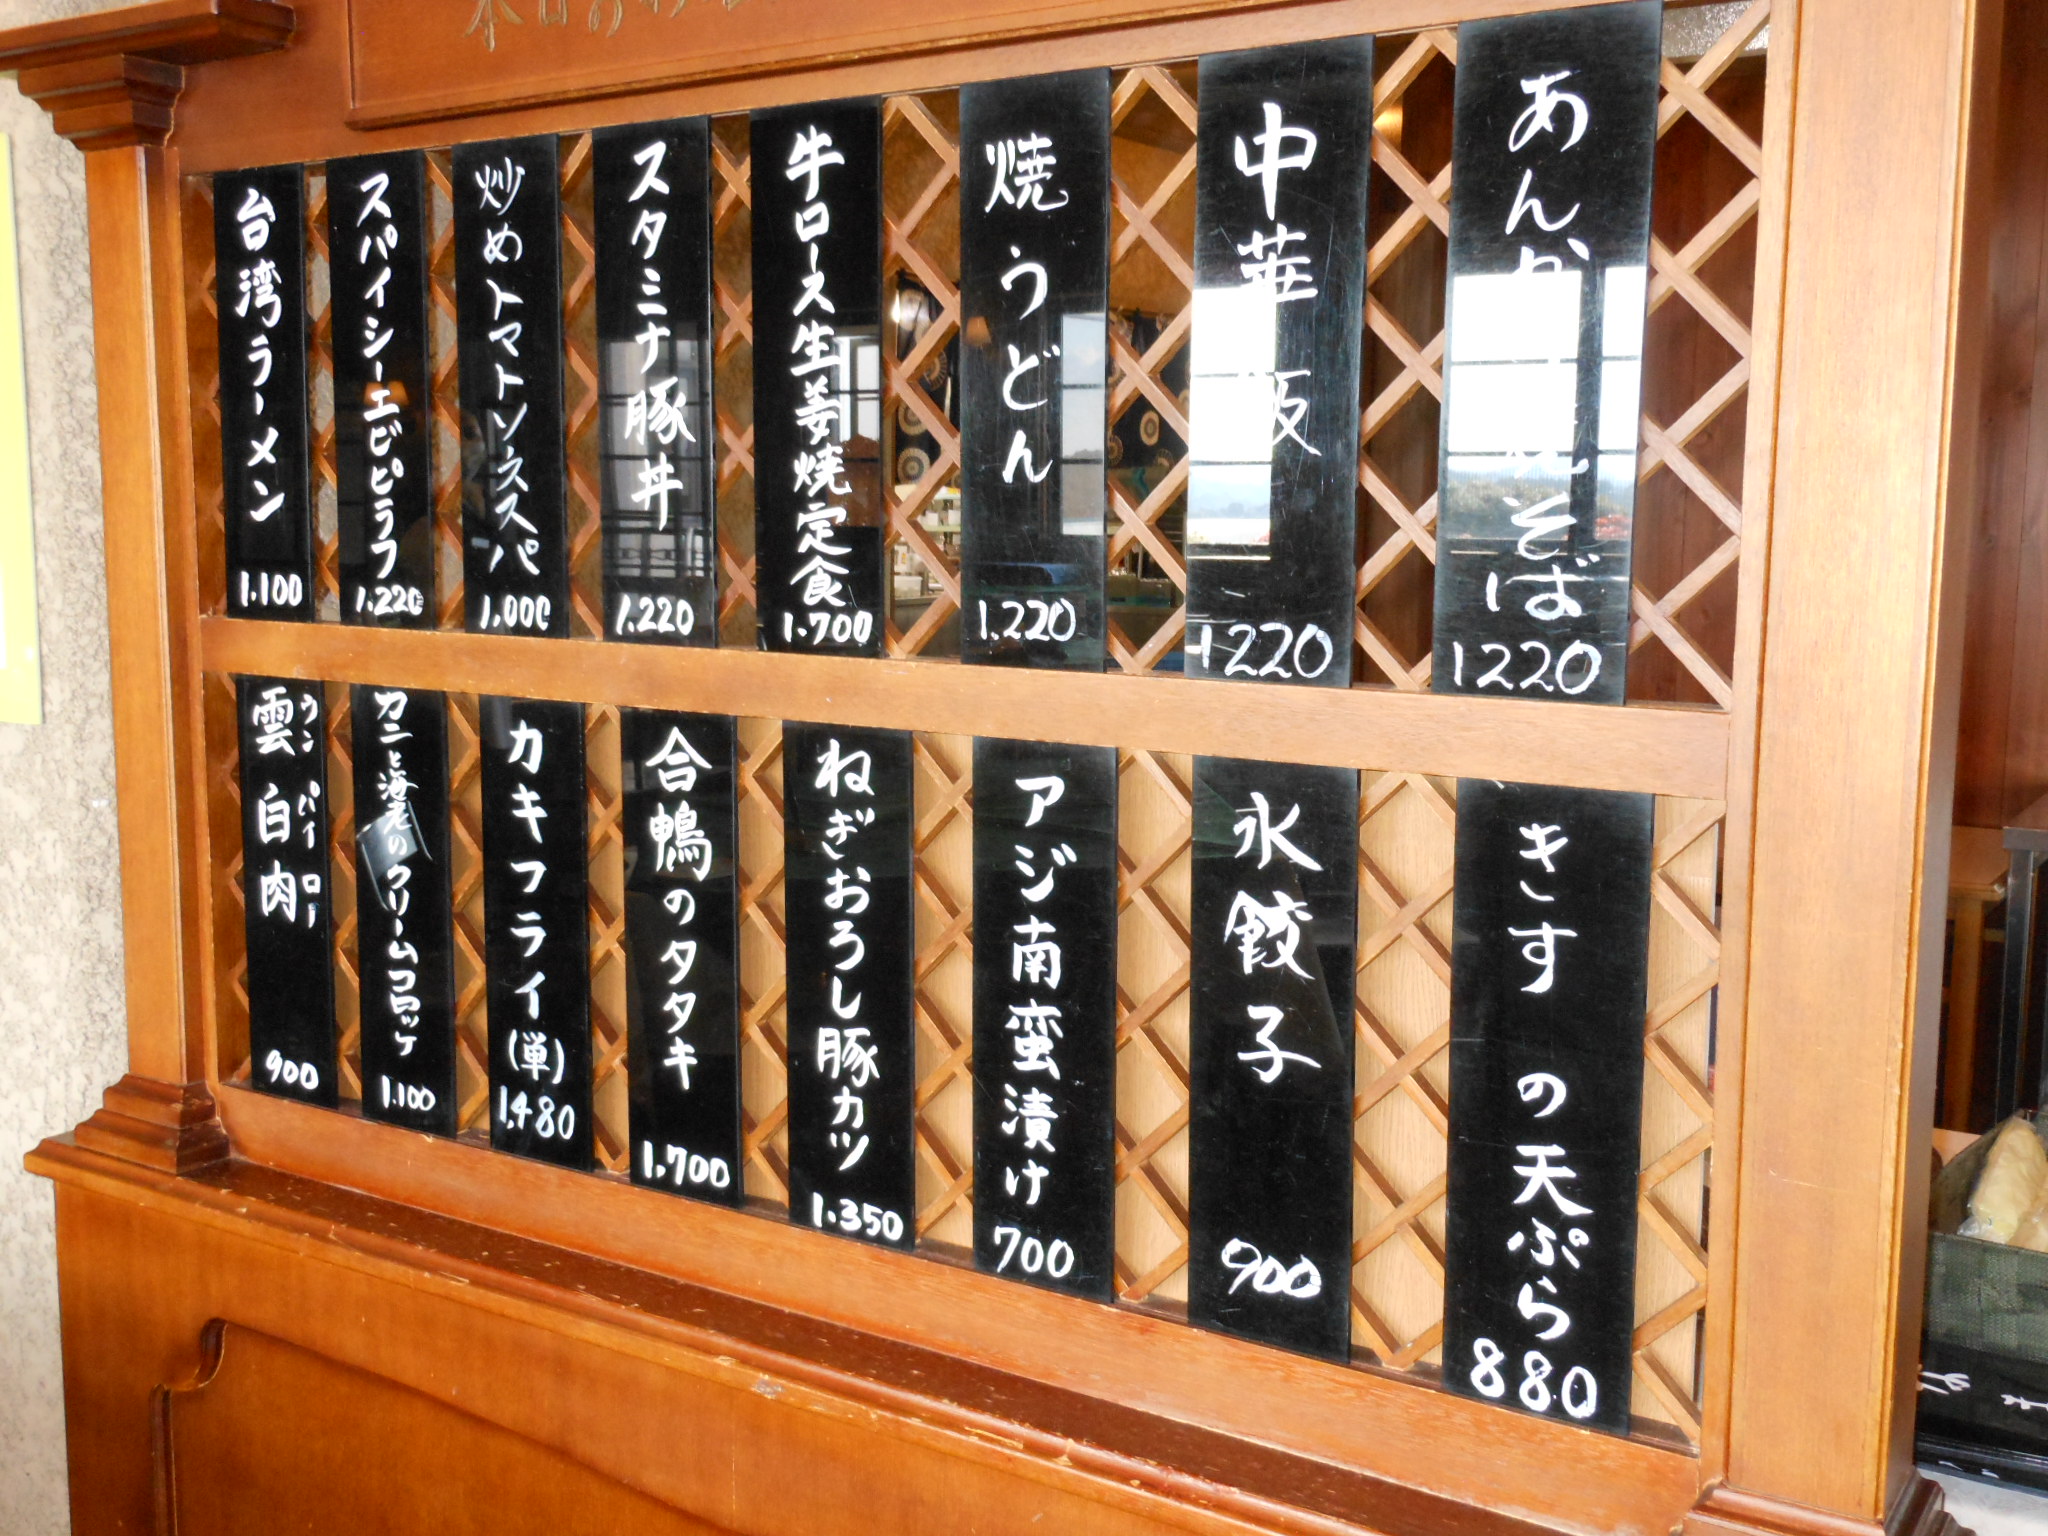 あんかけ焼そば
1220
中華飯
1220
焼うどん
1.220
牛ロース生姜焼定食
1.700
スタミナ豚丼
1.220
炒めトマトソーススパ
1,000
スパイシーエビピラフ
1.220
台湾ラーメン
1.100
きすの天ぷら
880
水餃子
900
アジ南蛮漬け
700
ねぎおろし豚カツ
1.350
合鴨のタタキ
1.700
カキフライ(単)
1,480
カニと海老のクリームコロッケ
1.100
雲白肉
ウンパイロー
900